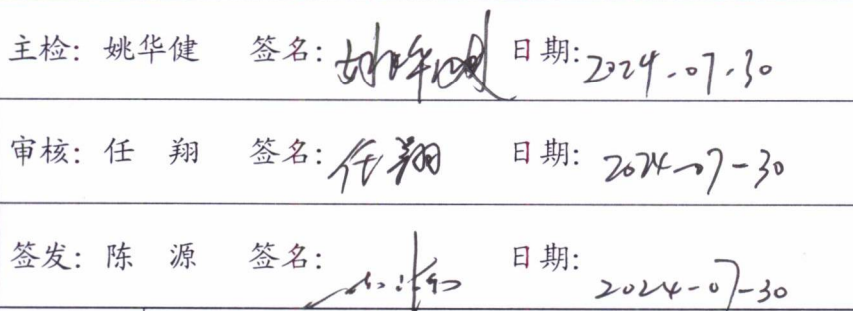 主检：姚华健 签名：姚华健 日期：2024.07.30
审核：任 翔 签名：任翔 日期：2024-07-30
签发：陈 源 签名： 日期：2024-07-30